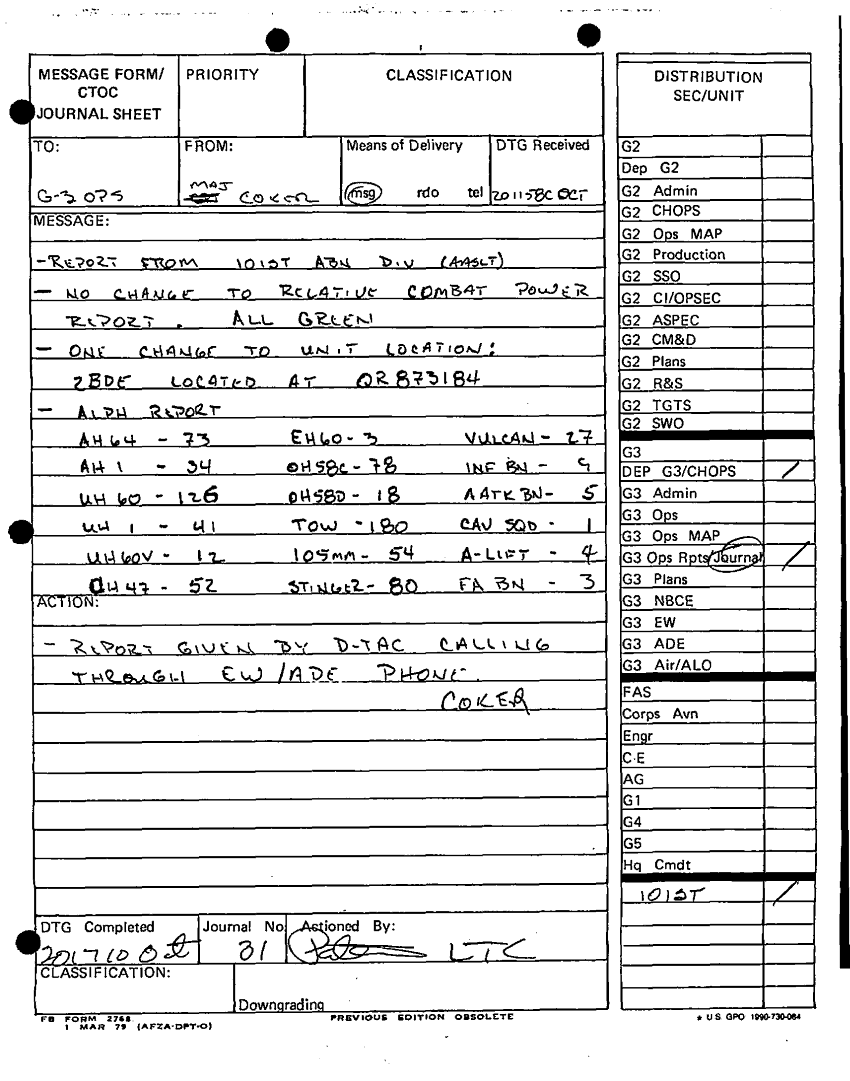 MESSAGE FORM/ CTOC JOURNAL SHEET
PRIORITY
CLASSIFICATION
TO: G-3 OPS
FROM: MAJ COKER
Means of Delivery msg rdo tel
DTG Received 201158C OCT
MESSAGE:
-REPORT FROM 101ST ABN DIV (AASLT)
- NO CHANGE TO RELATIVE COMBAT POWER
REPORT. ALL GREEN
- ONE CHANGE TO UNIT LOCATION:
2BDE LOCATED AT QR873184
- ALPH REPORT
AH64 - 73 EH60- 3 VULCAN- 27
AH1 - 34 OH58C- 78 INF BN - 9
UH60 - 126 OH58D - 18 AATK BN- 5
UH 1 - 41 TOW -180 CAV SQD - 1
UH60V - 12 105MM- 54 A-LIFT - 4
CH47 - 52 STINGER- 80 FA BN - 3
ACTION:
- REPORT GIVEN BY D-TAC CALLING
THROUGH EW/ADE PHONE.
COKER
DTG Completed 201710 Oct
Journal No 31
Actioned By: LTC
CLASSIFICATION:
Downgrading
FB FORM 2768
1 MAR 79 (AFZA-DPT-O)
PREVIOUS EDITION OBSOLETE
DISTRIBUTION
SEC/UNIT
G2
Dep G2
G2 Admin
G2 CHOPS
G2 Ops MAP
G2 Production
G2 SSO
G2 CI/OPSEC
G2 ASPEC
G2 CM&D
G2 Plans
G2 R&S
G2 TGTS
G2 SWO
G3
DEP G3/CHOPS /
G3 Admin
G3 Ops
G3 Ops MAP
G3 Ops Rpts/Journal /
G3 Plans
G3 NBCE
G3 EW
G3 ADE
G3 Air/ALO
FAS
Corps Avn
Engr
C-E
AG
G1
G4
G5
Hq Cmdt
101ST /
* US GPO 1990-730-084